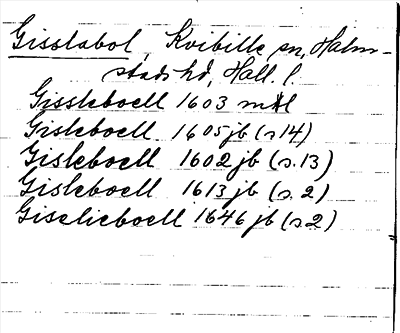 Gisslabol, Kvibille sn, Halm-
stads hd, Hall. l.
Gissleboell 1603 mtl
Gisleboell 1605 jb (s. 14)
Gisleboell 1602 jb (s. 13)
Gisleboell 1613 jb (s. 2)
Giselieboell 1646 jb (s. 2)